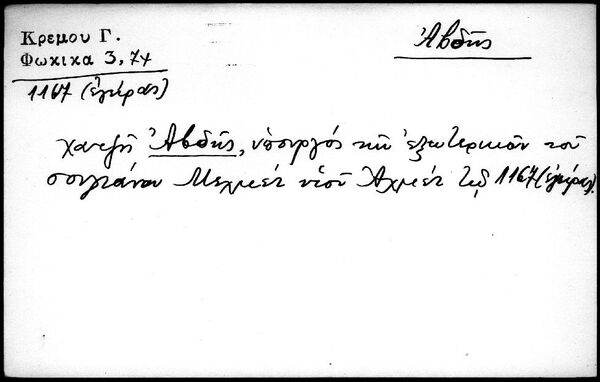 Κρεμου Γ.
Φωκικα 3, 74
1167 (ἐγίρας)
Ἀβδῆς
χατζῆ Ἀβδῆς, ὑπουργός τῶν ἐξωτερικῶν τοῦ
σουλτάνου Μεχμέτ υἱοῦ Ἀχμέτ τῷ 1167 (ἐγίρας).